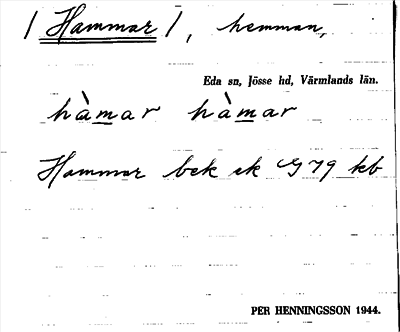 / Hammar /, hemman,
Eda sn, Jösse hd, Värmlands län.
hàmar hàmar
Hammar bek ek G 79 kb
PER HENNINGSSON 1944.